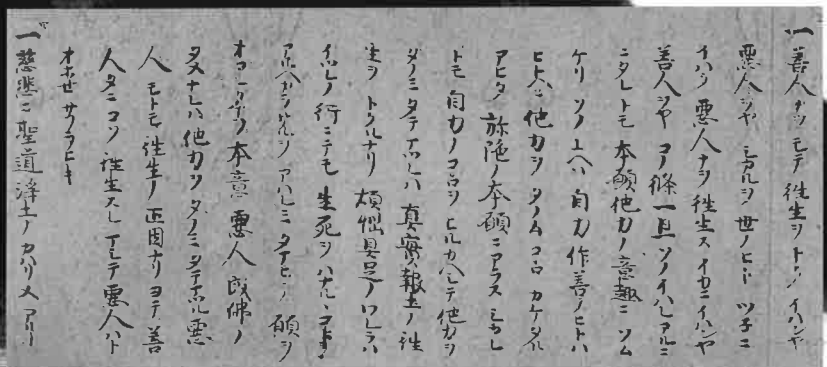 一 善人ナヲモテ往生ヲトク イハンヤ
悪人ヲヤ シカルヲ世ノヒト ツネニ
イハク 悪人ナヲ往生ス イカニイハンヤ
善人ヲヤ コノ條一旦ソノイハレアルニ
ニタレトモ 本願他力ノ意趣ニソム
ケリ ソノユヘハ 自力作善ノヒトハ
ヒトヘニ他力ヲ タノムココロ カケタル
アヒタ 弥陀ノ本願ニアラス シカレ
トモ 自力ノココロヲ ヒルカヘシテ 他力ヲ
タノミ タテマツレハ 真實報土ノ往
生ヲ トクルナリ 煩惱具足ノワレラハ
イツレノ行ニテモ 生死ヲ ハナルヽコト
アルヘカラサルヲ アハレミ タマヒテ 願ヲ
オコシタマフ 本意 悪人成佛ノ
タメナレハ 他力ヲ タノミ タテマツル悪
人 モトモ 往生ノ正因ナリ ヨテ善
人タニコソ 往生スレ マシテ悪人ハト
オホセ サフラヒキ
一 慈悲ニ聖道浄土ノ カハリメ アリ